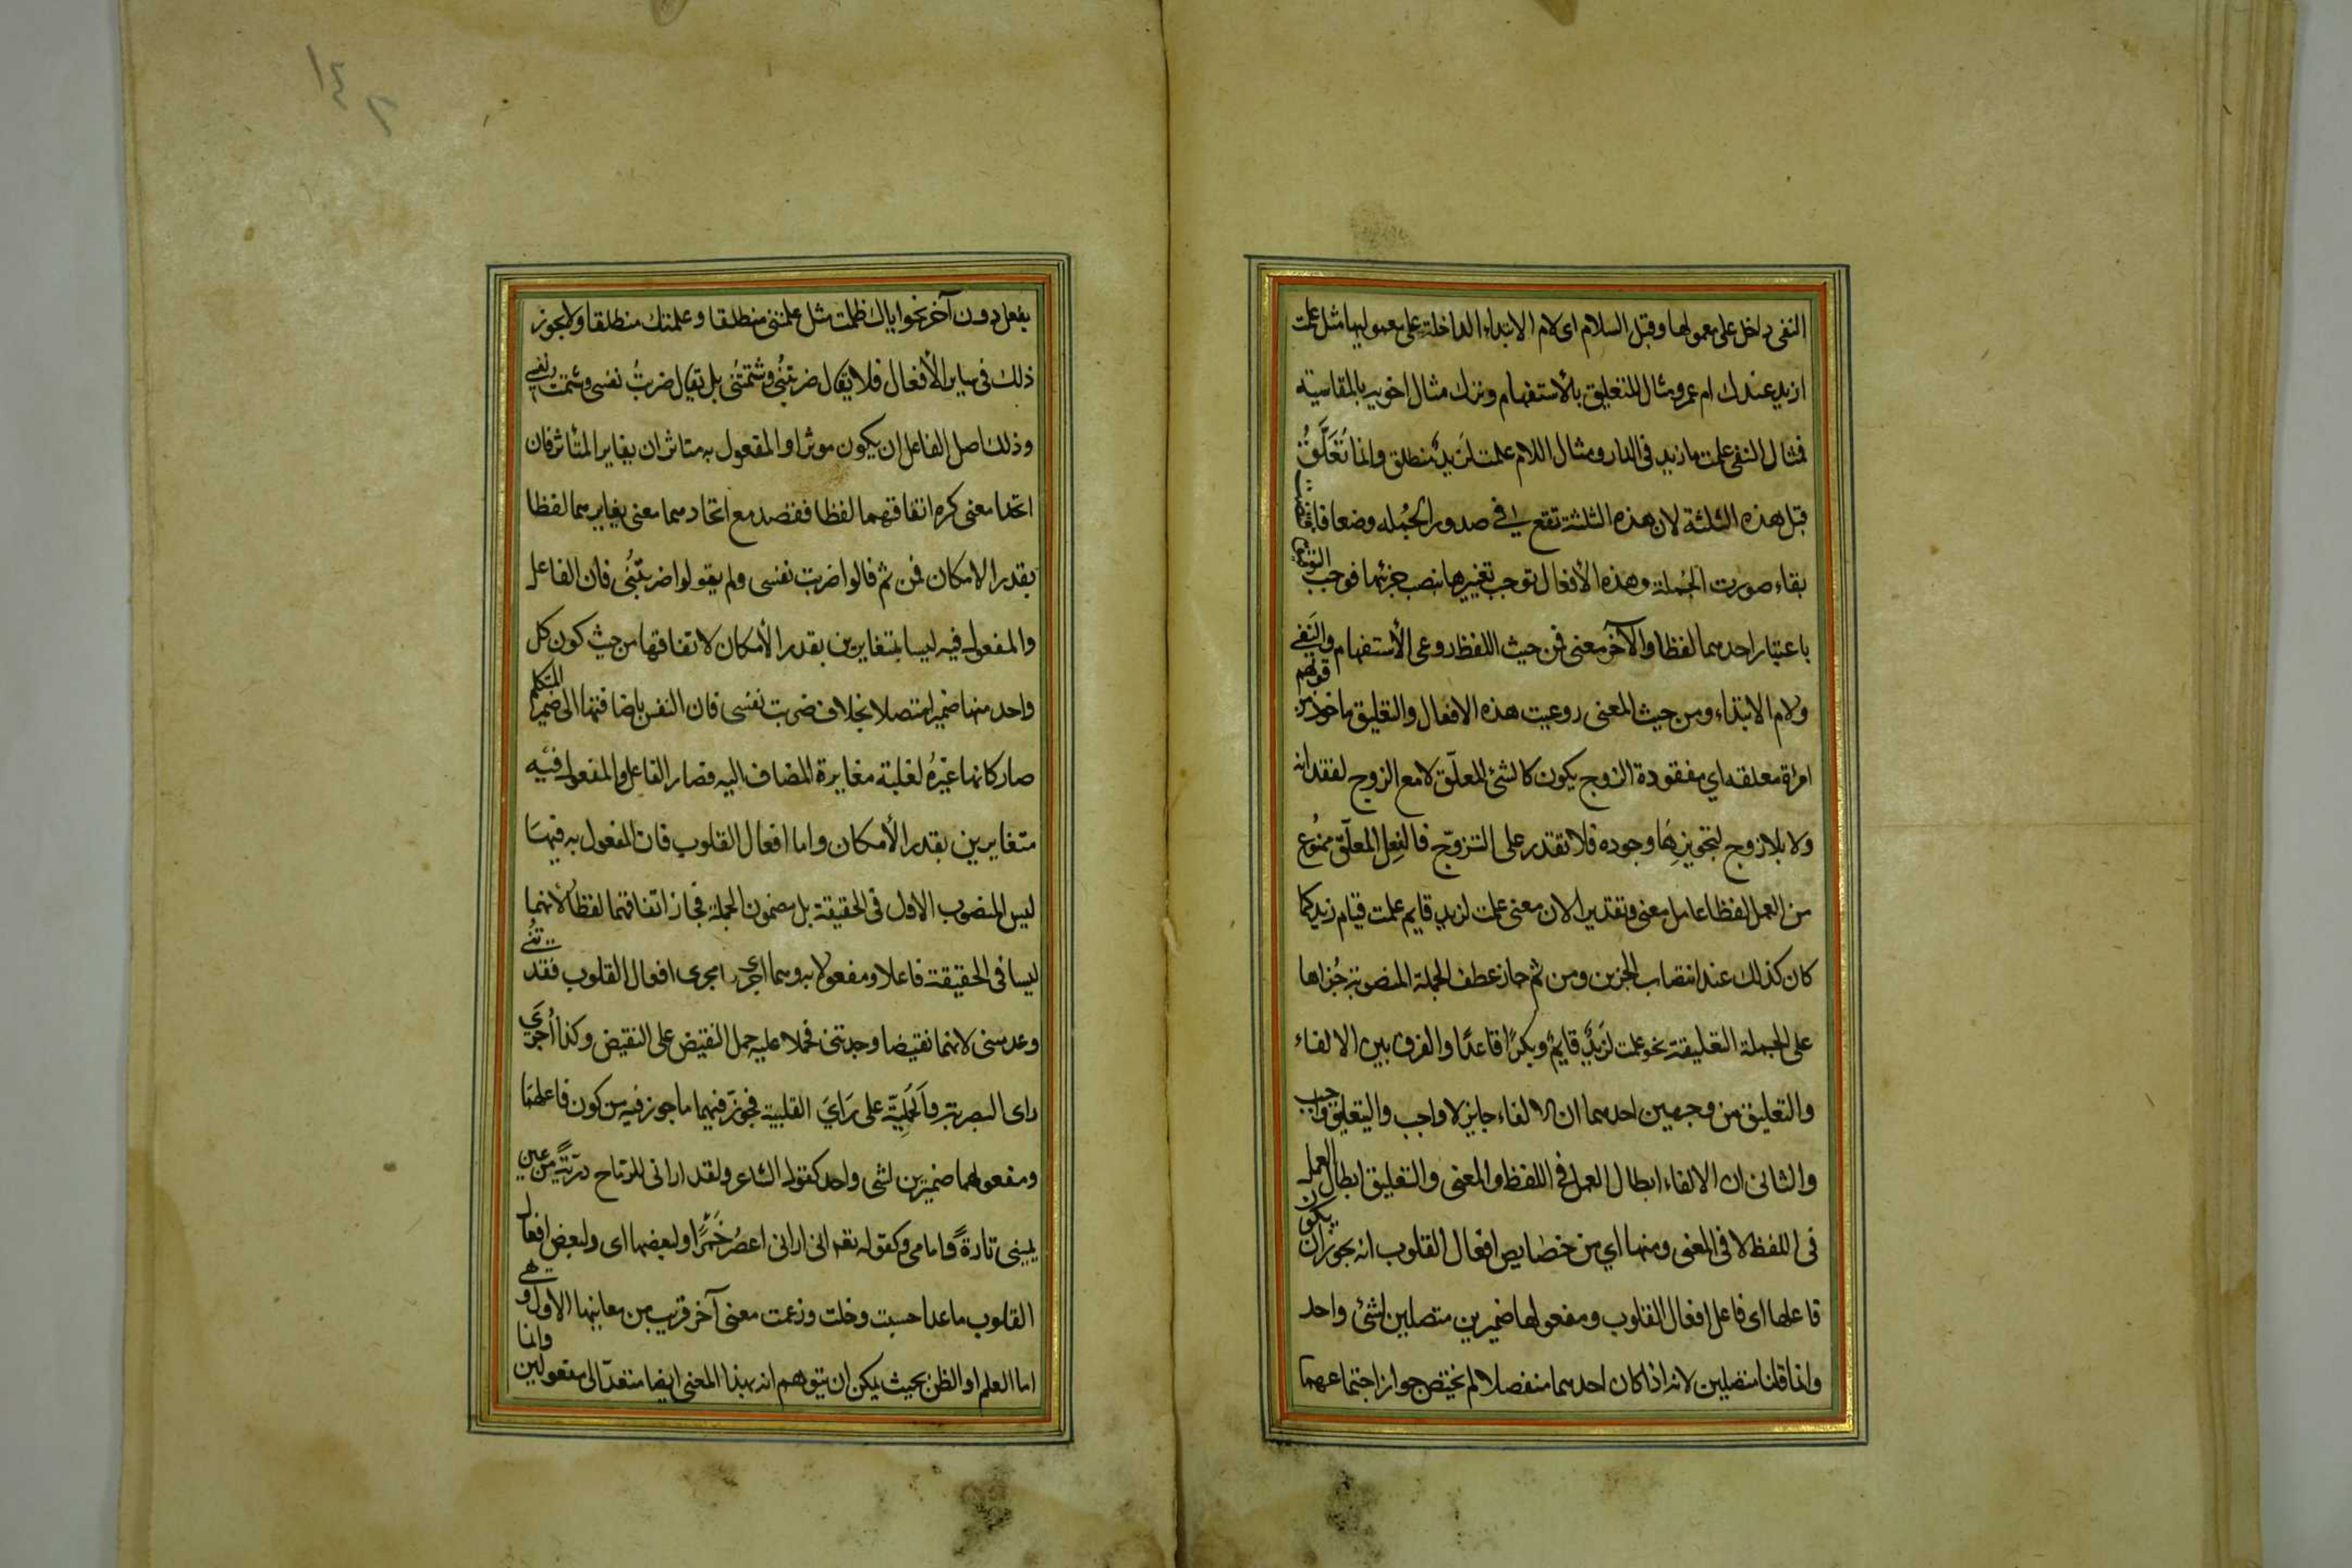 النفى داخل على معمولها وقبل السلام اى لام الابتداء الداخلة على معموليها مثل علمت
ازيد عندك ام عمرو مثال للتعليق بالأستفهام وترك مثال اخويه بالمقاسيته
فمثال النفى علمت ما زيد فى الدار ومثال اللام علمت لزيدٌ منطلق وانما تُعَلَّقُ
قبل هذه الثلثة لان هذه الثلثة تقع فى صدور الجُمله وضعا فاقتضت
بقاء صورت الجُملة وهذه الأفعال توجب تغييرها بنصب جزئها فوجب التوفيق
باعتبار احدهما لفظا والآخر معنى فمن حيث اللفظ روعى الأستفهام والنفى
ولام الابتداء ومن حيث المعنى روعيت هذه الافعال والتعليق ماخوذ من قولهم
امراة معلقه اي مفقودة الزوج يكون كالشئ المعلّق لا مع الزوج لفقدانه
ولا بلا زوج لتجويزِهَا وجوده فلا تقدر على التزوّج فالفِعل المعلّق ممنُوع
من العمل لفظا عامل معنى وتقديرا لان معنى علمت لزيد قايم علمت قيام زيد كما
كان كذلك عند انتصاب الجزين ومن ثم جاز عطف الجملة المنصوبة جُزاها
على الجملة التعليقة نحو علمت لزيدٌ قايمٌ وبكرًا قاعدًا والفرق بين الالغاء
والتعليق من وجهين احدهما ان الالغاء جايز لا واجب والتعليق واجب
والثانى ان الالغاء ابطال العمل فى اللفظ والمعنى والتعليق ابطال العمل
فى اللفظ لا فى المعنى ومنها اي من خصايص افعال القلوب انه يجوز ان يكون
فاعلها اى فاعل افعال القلوب ومفعولها ضميرين متصلين لشئ واحد
وانما قلنا متصلين لانه اذا كان احدهما منفصلا لم يختص جواز اجتماعهما
١٤٢
بفعل دون آخر نحو اياك ظلمت مثل علمتنى منطلقا وعلمتك منطلقا ولا يجوز
ذلك فى ساير الأفعال فلا يقال ضربتنُى وشتمتُنى بل يقال ضربتُ نفسى وشتمت نفسى
وذلك اصل الفاعل ان يكون موثرا والمفعول به متاثرا ان يغاير المتأثر فان
اتحدا معنى كره اتفاقهما لفظا فقصد مع اتحادهما معنى تغايرهما لفظا
بقدر الامكان فمن ثم قالوا ضربت نفسى ولم يقولوا ضربتُنى فان الفاعل
والمفعول فيه ليسا بمتغايرين بقدر الأمكان لاتفاقهما من حيث كون كل
واحد منهما ضميرا متصلا بخلاف ضربت نفسى فان النفس باضافتها الى ضمير المتكلم
صار كانها غيرُه لغلبة مغايرة المضاف اليه فصار الفاعل والمفعول فيه
متغايرين بقدر الأمكان واما افعال القلوب فان المفعول به فيها
ليس المنصوب الاول فى الحقيقة بل مضمون الجملة فجاز اتفاقهما لفظا لأنهما
ليسا فى الحقيقة فاعلا ومفعولا به ومما اجرى مجرى افعال القلوب فقدتُنى
وعدمتنى لانهما نقيضا وجدتنى فحملا عليه حمل النقيض على النقيض وكذا أُجرَى
راى البصرية والحُلمِيّة على رَاَيَ القلبية فجوز فيهما ما جوز فيه من كون فاعلهما
ومفعولهما ضميرين لشى واحد كقول الشاعر ولقد ارانى للرتاح دريّةً من عين
يمينى تارةً وامامى وكقوله تعه انى ارانى اعصُر خَمْرًا ولبعضها اى ولبعض افعال
القلوب ما عدا حسبت وخلت وزعمت معنى آخر قريب من معانيها الاول وهى
اما العلم او الظن بحيث يمكن ان يتوهم انه بهذا المعنى ايضا متعدّ الى مفعولين وانما